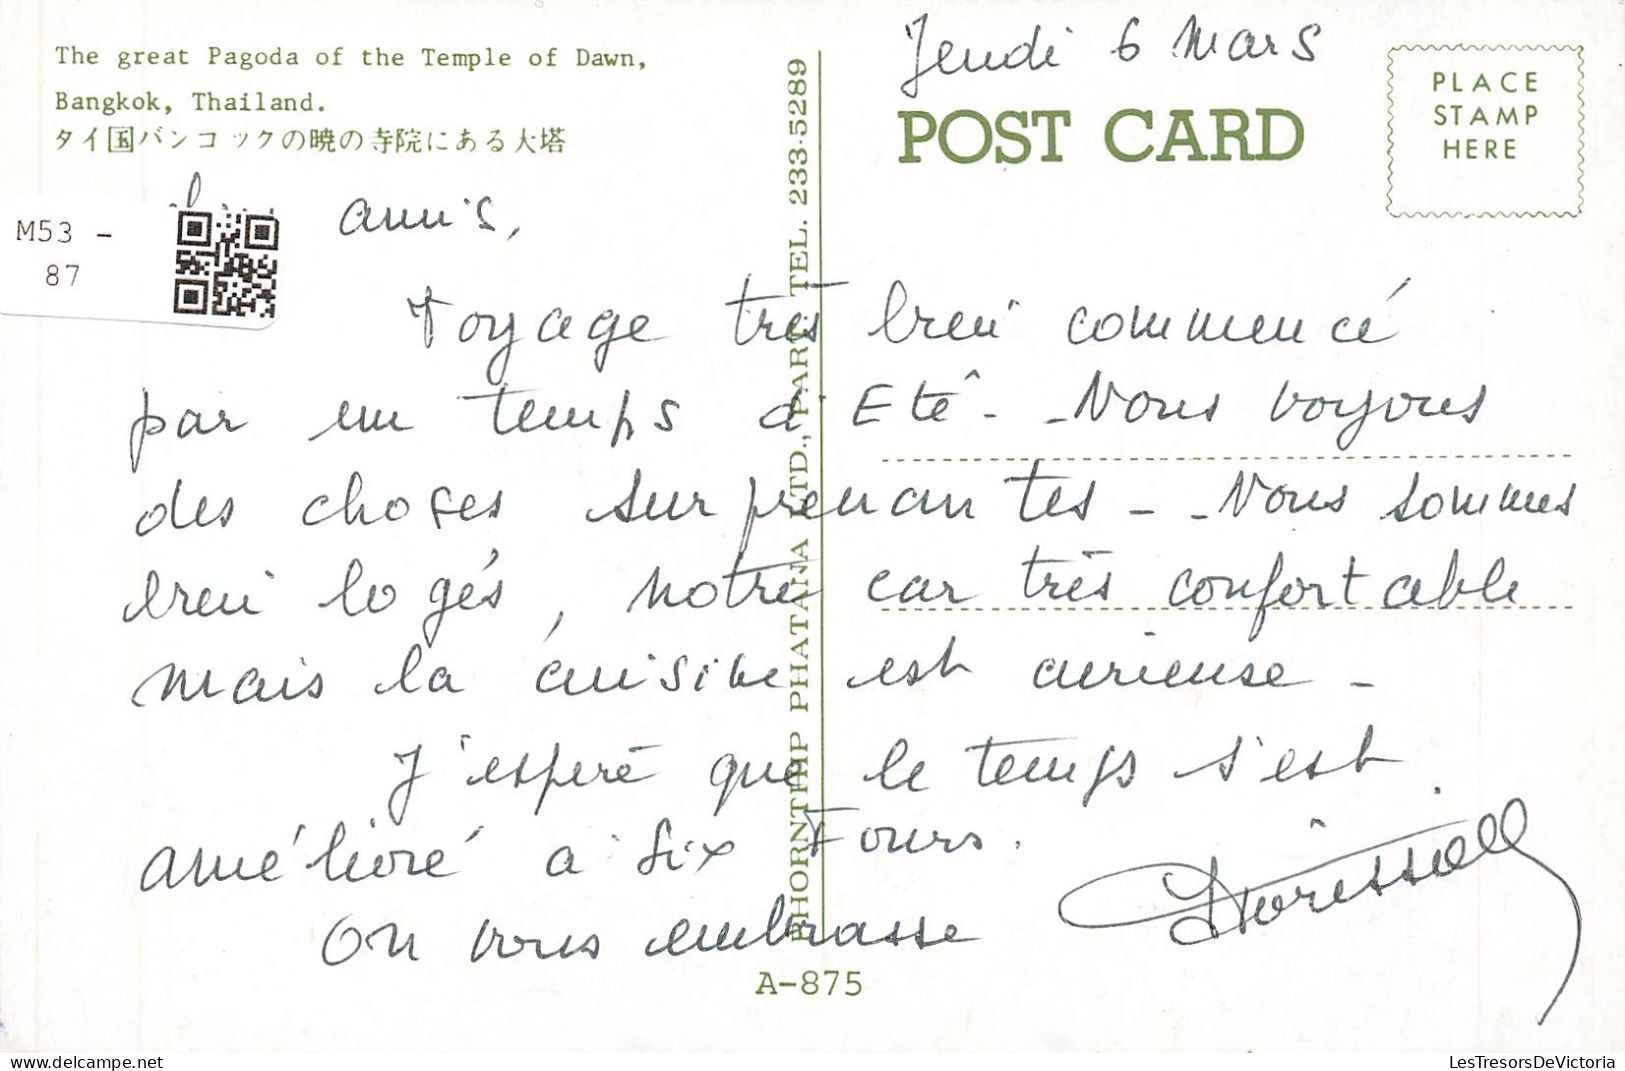 The great Pagoda of the Temple of Dawn,
Bangkok, Thailand.
タイ国バンコックの暁の寺院にある大塔
Jeudi 6 Mars
POST CARD
PLACE
STAMP
HERE
M53 -
87
amis,
Voyage très bien commencé
par un temps d'Eté - - Nous voyons
des choses surprenantes - - Nous sommes
bien logés, notre car très confortable
mais la cuisine est curieuse -
J'espère que le temps s'est
amélioré à Six Fours.
On vous embrasse
PHORNTHIP PHATANA LTD., PART. TEL. 233-5289
A-875
delcampe.net
LesTresorsDeVictoria